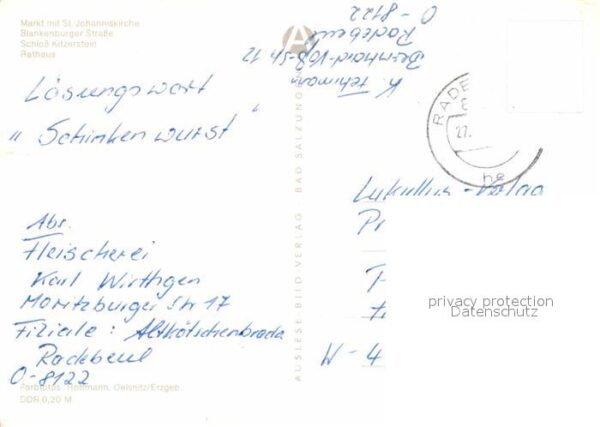 Markt mit St. Johanniskirche
Blankenburger Straße
Schloß Kitzerstein
Rathaus
Lösungswort
„ Schinkenwurst "
Abs.
Fleischerei
Karl Wirthgen
Moritzburger Str 17
Filiale: Altkötschenbroda
Radebeul
O-8122
Farbfotos: Hoffmann, Oelsnitz/Erzgeb.
DDR 0,20 M
AUSLESE-BILD-VERLAG · BAD SALZUNGEN
A
K.
Bernhard-Voß-Str. 12
Radebeul
O-8122
RADE
27.
Lukullus-Verlag
W-4
privacy protection
Datenschutz